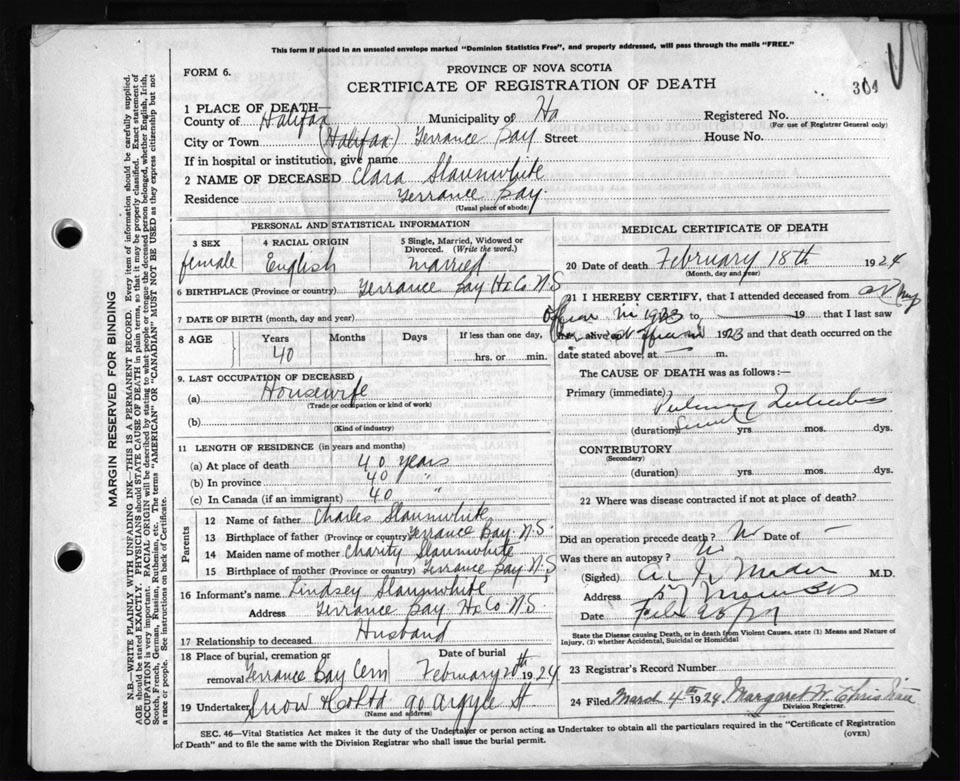 This form if placed in an unsealed envelope marked "Dominion Statistics Free", and properly addressed, will pass through the mails "FREE."
FORM 6.
PROVINCE OF NOVA SCOTIA
CERTIFICATE OF REGISTRATION OF DEATH
304
1 PLACE OF DEATH—
County of Halifax Municipality of Hx Registered No.
(For use of Registrar General only)
City or Town (Halifax) Terrance Bay Street House No.
If in hospital or institution, give name
2 NAME OF DECEASED Clara Slaunwhite
Residence Terrance Bay
(Usual place of abode)
PERSONAL AND STATISTICAL INFORMATION
3 SEX 4 RACIAL ORIGIN 5 Single, Married, Widowed or Divorced. (Write the word.)
female English Married
6 BIRTHPLACE (Province or country) Terrance Bay Hx Co N.S.
7 DATE OF BIRTH (month, day and year)
8 AGE Years Months Days If less than one day,
40 hrs. or min.
9. LAST OCCUPATION OF DECEASED
(a) Housewife
(Trade or occupation or kind of work)
(b)
(Kind of industry)
11 LENGTH OF RESIDENCE (in years and months)
(a) At place of death 40 years
(b) In province 40 "
(c) In Canada (if an immigrant) 40 "
Parents
12 Name of father Charles Slaunwhite
13 Birthplace of father (Province or country) Terrance Bay N.S.
14 Maiden name of mother Charity Slaunwhite
15 Birthplace of mother (Province or country) Terrance Bay N.S.
16 Informant's name Lindsey Slaunwhite
Address Terrance Bay Hx Co N.S.
17 Relationship to deceased Husband
18 Place of burial, cremation or removal Date of burial
Terrance Bay Cem February 20th 1924
19 Undertaker Snow & Co Ltd 90 Argyle St
(Name and address)
MEDICAL CERTIFICATE OF DEATH
20 Date of death February 18th 1924
(Month, day and year)
21 I HEREBY CERTIFY, that I attended deceased from at my
office in 1923 to 19 that I last saw
alive at office in 1923 and that death occurred on the
date stated above, at — m.
The CAUSE OF DEATH was as follows:—
Primary (immediate) Pulmonary Tuberculosis
(duration) Several yrs. mos. dys.
CONTRIBUTORY
(Secondary)
(duration) yrs. mos. dys.
22 Where was disease contracted if not at place of death?
Did an operation precede death? No Date of —
Was there an autopsy? No
(Signed) M.D.
Address
Date Feb 20
State the Disease causing Death, or in death from Violent Causes, state (1) Means and Nature of Injury, (2) whether Accidental, Suicidal or Homicidal
23 Registrar's Record Number
24 Filed March 4th 1924 Margaret W. Christian
Division Registrar.
SEC. 46—Vital Statistics Act makes it the duty of the Undertaker or person acting as Undertaker to obtain all the particulars required in the "Certificate of Registration
of Death" and to file the same with the Division Registrar who shall issue the burial permit.
(OVER)
MARGIN RESERVED FOR BINDING
N.B.—WRITE PLAINLY WITH UNFADING INK—THIS IS A PERMANENT RECORD. Every item of information should be carefully supplied.
AGE should be stated EXACTLY. PHYSICIANS should STATE CAUSE OF DEATH in plain terms, so that it may be properly classified. Exact statement of
OCCUPATION is very important. RACIAL ORIGIN will be described by stating to what people or tongue the deceased person belonged, whether English, Irish,
Scotch, French, German, Russian, Ruthenian, etc. The terms "AMERICAN" OR "CANADIAN" MUST NOT BE USED as they express citizenship but not
a race or people. See instructions on back of Certificate.